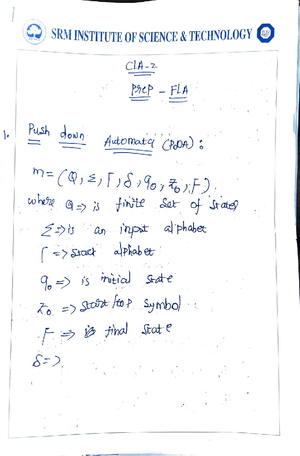 SRM INSTITUTE OF SCIENCE & TECHNOLOGY
CLA-2
Prep - FLA
1. Push down Automata (PDA):
m = (Q, Σ, Γ, δ, q₀, z₀, F).
where Q => is finite set of states
Σ => is an input alphabet
Γ => stack alphabet
q₀ => is initial state
z₀ => start/top symbol
F => is final state
δ =>